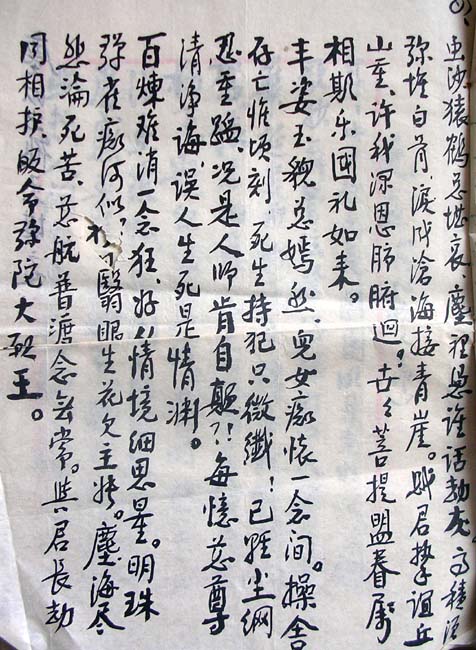 虫沙猿鶴总堪哀，塵裡恩谁话劫灰，
弥堆白骨泪成滄海接青崖。感君挚谊丘
山重、许我深恩肺腑迴。世々菩提盟眷属
相期乐国礼如来。
丰姿玉貌总嫣然，兒女痴懷一念间。操舍
存亡惟顷刻，死生持犯只微纖！已罹尘網
忍重蹈，况是人师肯自颠?! 每憶慈尊
清净诲，误人生死是情渊。
百煉难消一念狂，好从情境细思量。明珠
弹雀痴何似？翳眼生花久主张。塵海尽
然淪死苦、慈航普渡念无常。與君長劫
同相护，皈命弥陀大愿王。